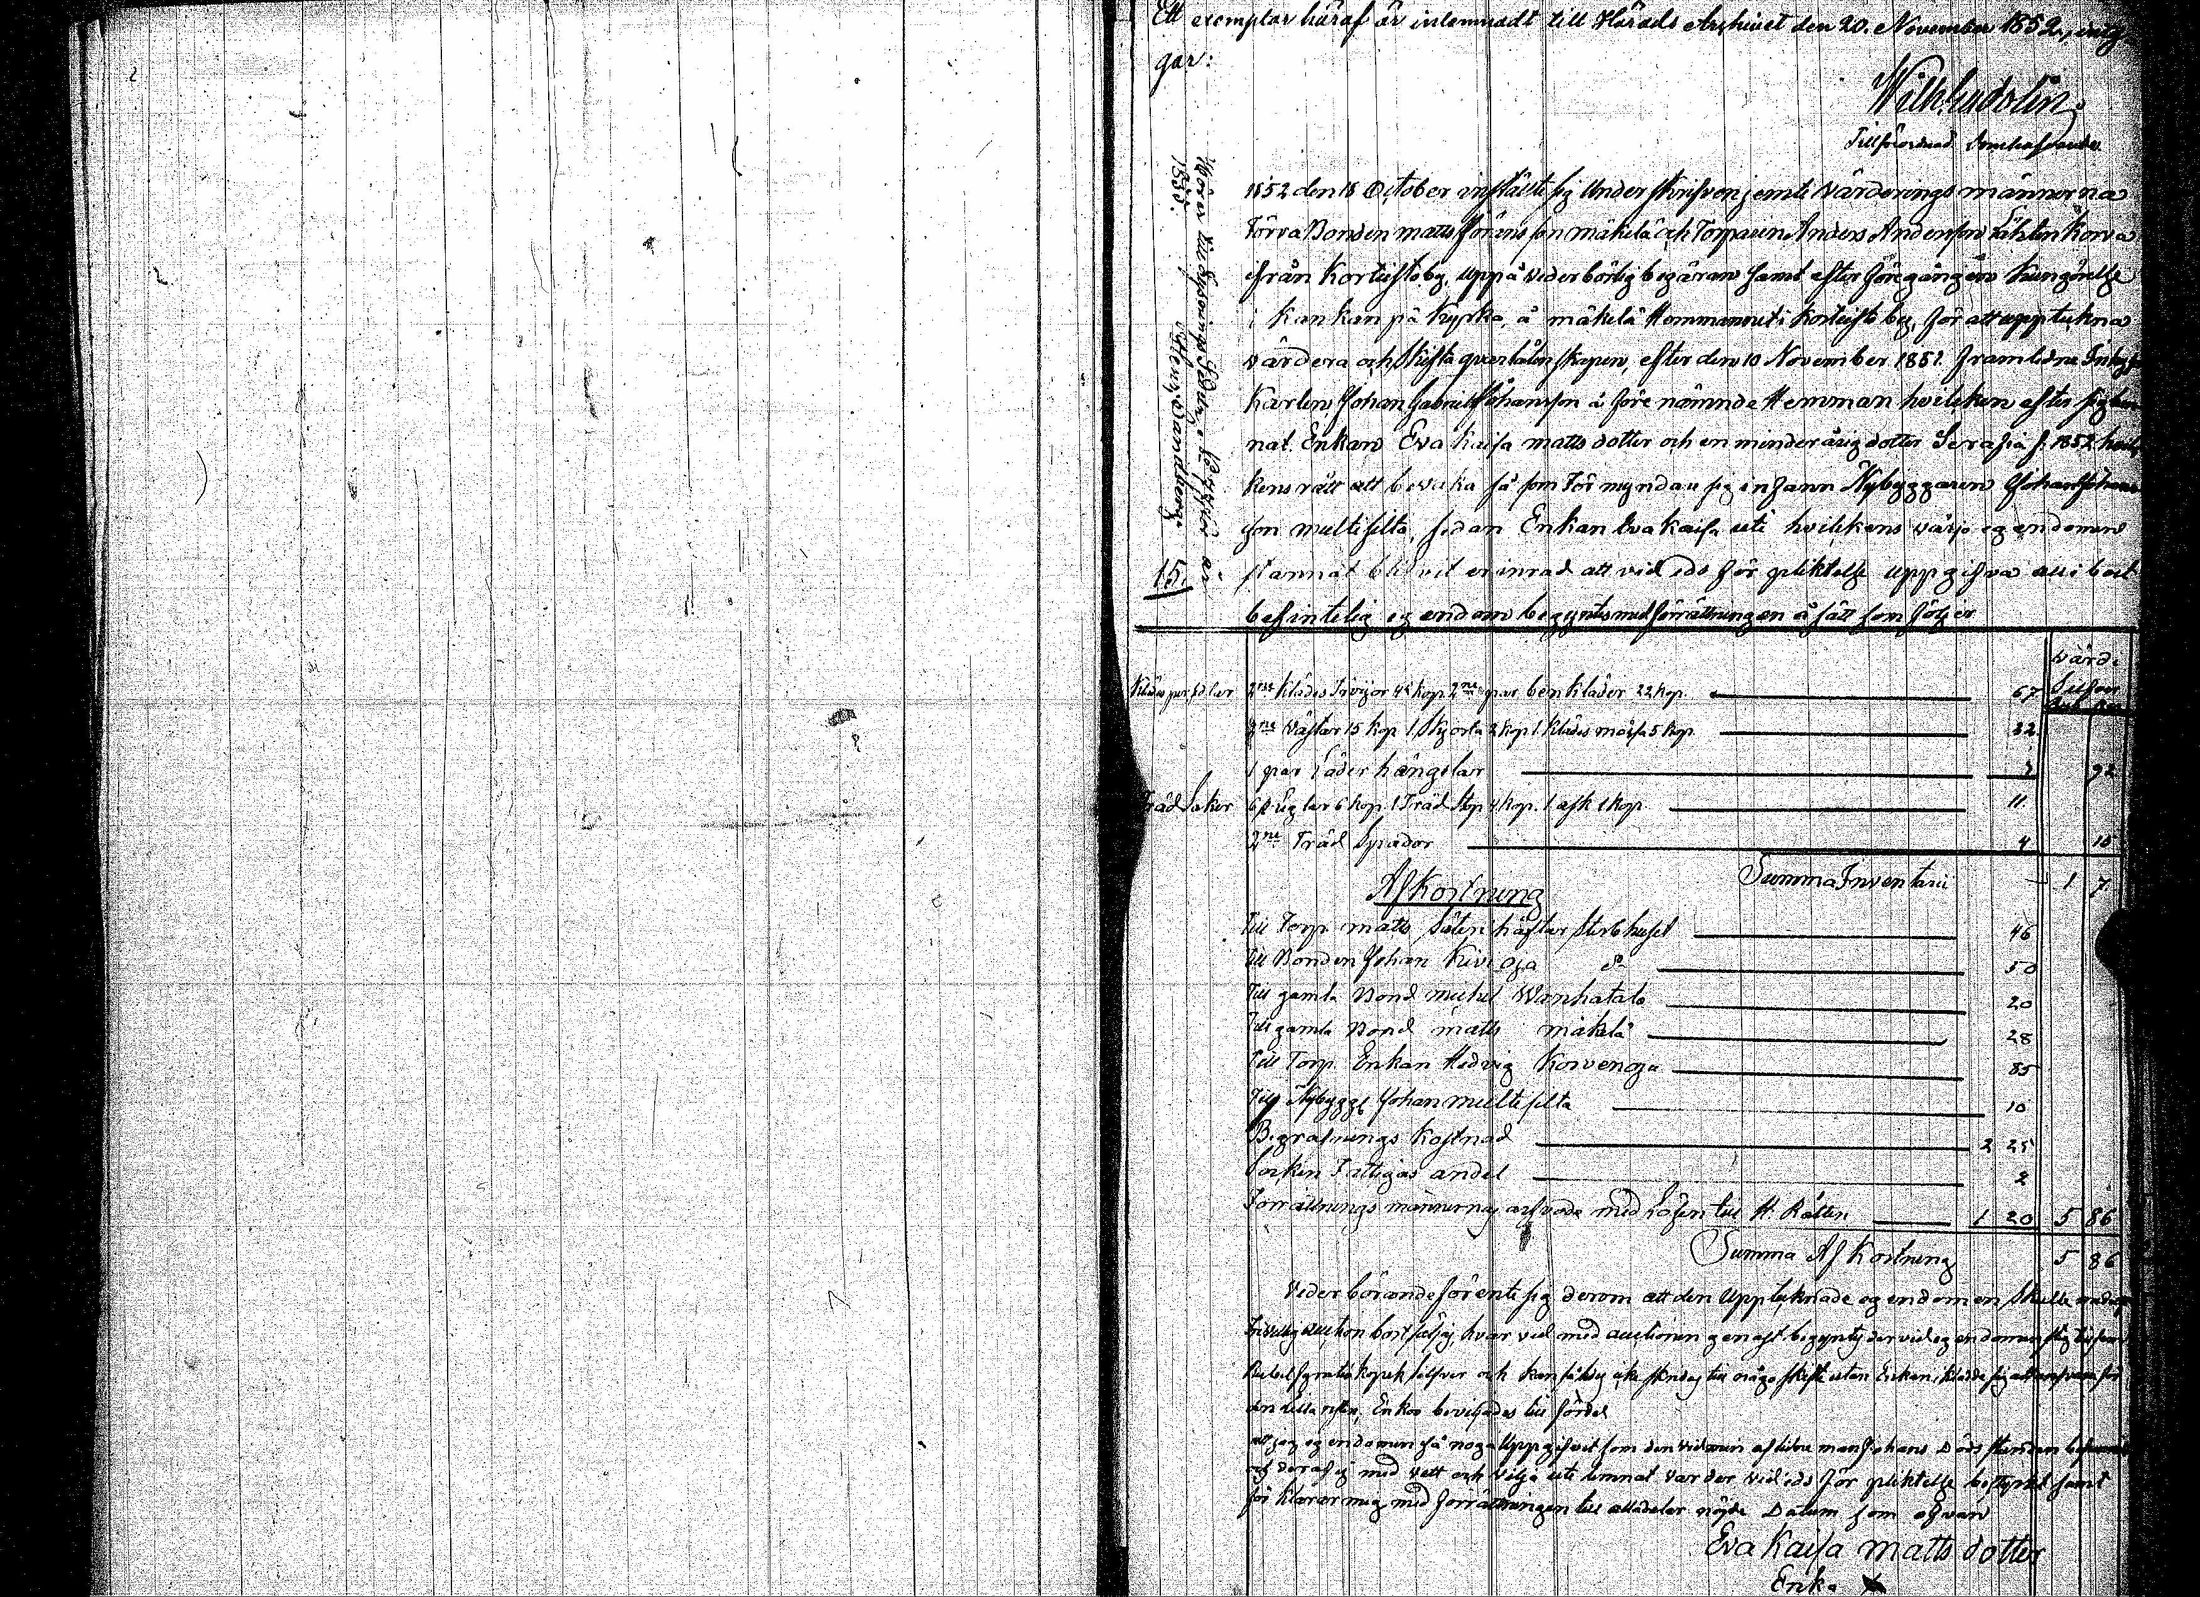 Ett exemplar häraf är inlemnadt till Härads Archivet den 20. November 1852, intygar:
Tillförordnad Domhafvande
Hörer till Sysslomings
1853.
15
1852 den 18 October inställte sig Underskrifven jemte Värderings männerna
Förra Bonden matts Göransson mäkelä och Torparen Anders Andersson Korva
ifrån Kortesto by, uppå vederbörlig begäran samt efter föregången Kungörelse
i Kankanpä Kyrka, å mäkelä Hemmanet i Kortesto by, för att uppteckna
värdera och Skifta qvarlåtenskapen, efter den 10 November 1851 framledne Inhyses
Karlen Johan Gabriel Johansson å förenämnde Hemman hvilken efter sig läm
nat Enkan Eva Kaisa matts dotter och en minderårig dotter Serafia f. 1852 hvil
kens rätt att bevaka så som Förmyndare sig infann Nybyggaren Johan Johans
son multisilta, sedan Enkan Eva Kaisa uti hvilkens värjo egendomen
stannat blifvit erinrad att vid eds förpliktelse uppgifva all i boet
befintelig egendom begyntes med förrättningen å sätt som följer
Värde
Silfver
Rub. Kop.
Klädespersedlar 2ne Klädes Tröijor 45 kop 2ne par benkläder 22 kop. 67
3ne Västar 15 Kop 1 Skjorta 2 kop 1 Klädes mössa 5 kop. 22
1 par Läder hängslar 3 92
Träd Saker 6 st Seglar 6 kop. 1 Träd Stop 4 kop. 1 ask 1 kop. 11
2ne Träd Spador 4 15
Summa Inventarii 1 7
Afkortning
Till Torp matts Salin häftar Sterbhuset 46
Till Bonden Johan Kivioja do 50
Till gamla Bond michel Wanhatalo 20
Till gamla Bond matts mäkelä 28
Till Torp. Enkan Hedvig Korvenoja 85
Till Nybygg. Johan multisilta 10
Begrafnings Kostnad 2 25
Socken Fattigas andel 2
Förrättnings männernas arfvode med Lösen till H. Rätten 1 20 5 86
Summa Afkortning 5 86
Vederbörande förente sig derom att den Upptecknade egendomen Skulle medelst
frivillig auction bortsäljas, hvar vid med auctionen genast begyntes der vid egendomen steg till
Rubel kopek silfver och kan således icke skridas till någe skifte utan Enkan
den lilla resten, Enkan beviljades till fördel
att jag egendomen så noga Uppgifvit som den vid min aflidne man Johans Döds stund befanns
och deraf ej med vett och vilja uti lemnat varder vid eds förpliktelse bestyrkt samt
förklarar mig med förrättningen till alla delar nöjde Datum som ofvan
Eva Kaisa matts dotter
Enka